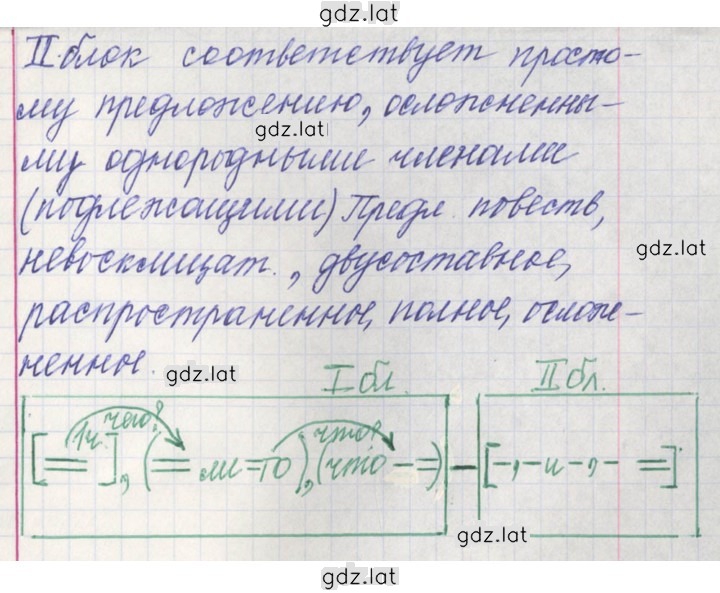 gdz.lat
II блок соответствует просто-
му предложению, осложненны-
gdz.lat
му однородными членами
(подлежащими) Предл. повеств,
gdz.lat
невосклицат., двусоставное,
распространенное, полное, ослож-
ненное.
gdz.lat
I бл. II бл.
1ч. чего? что?
[ = ], ( = ли – то ), (что – = ) – [ –, – и –, – = ].
gdz.lat
gdz.lat